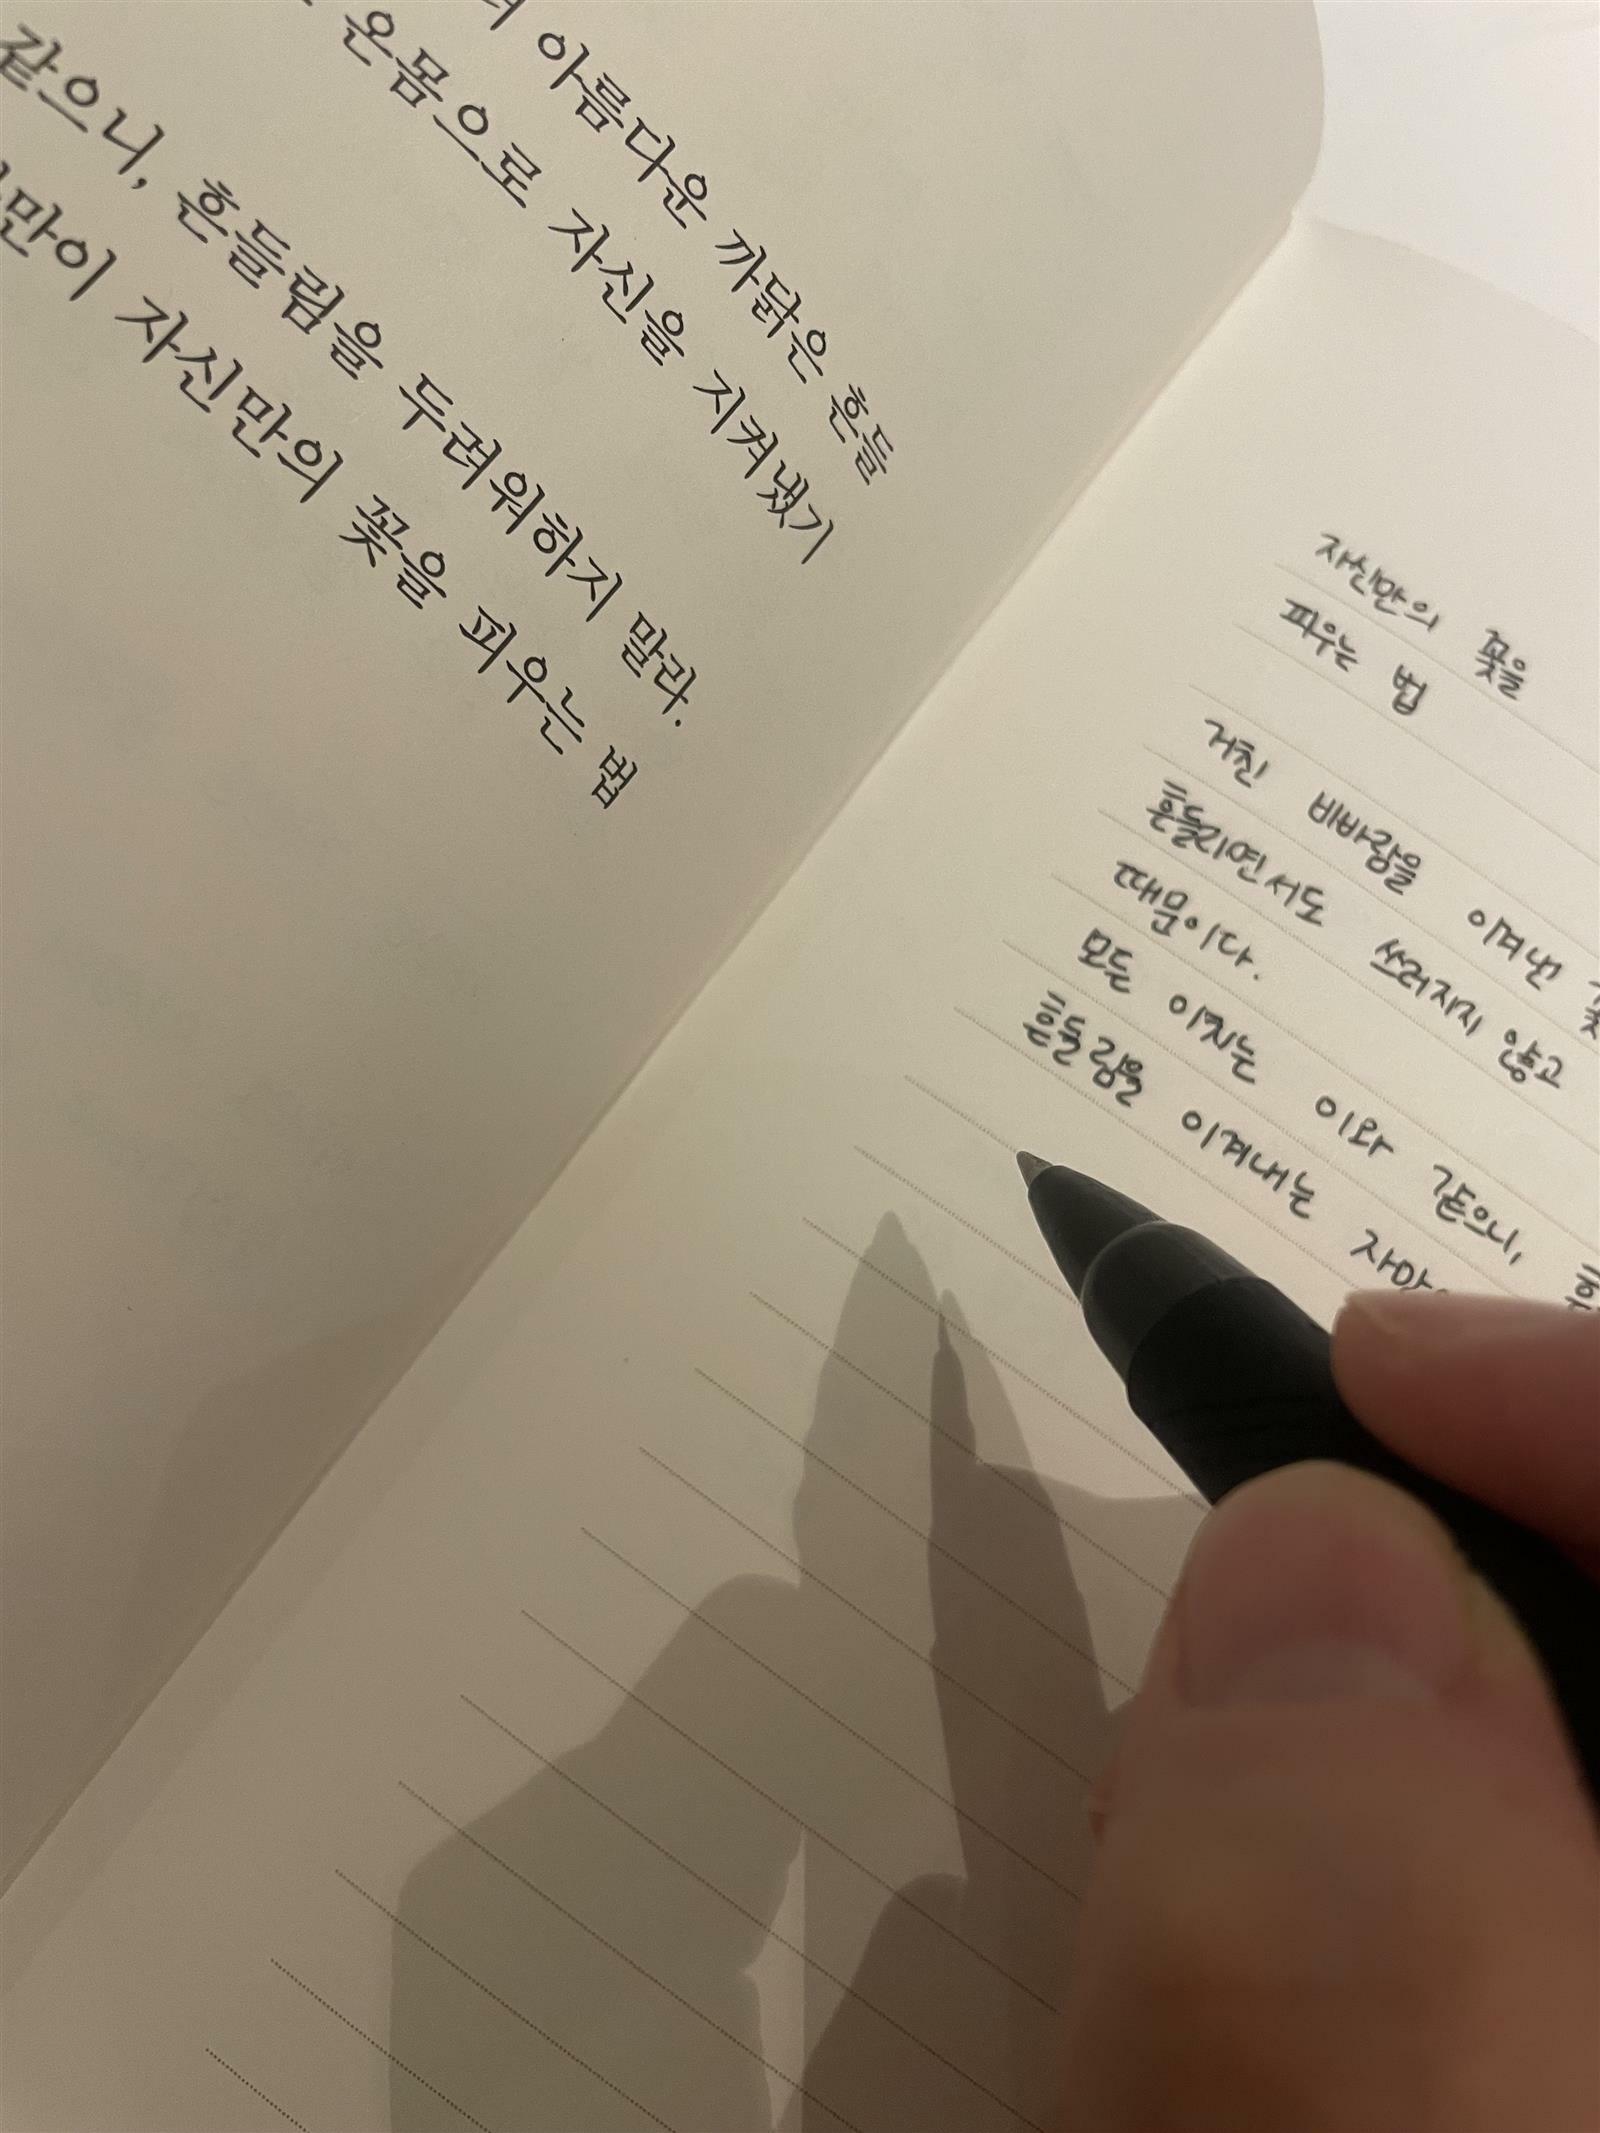 아름다운 까닭은 흔들
온몸으로 자신을 지켜냈기
같으니, 흔들림을 두려워하지 말라.
만이 자신만의 꽃을 피우는 법
자신만의 꽃을
피우는 법
거친 비바람을 이겨낸
흔들리면서도 쓰러지지 않고
때문이다.
모든 이치는 이와 같으니,
흔들림을 이겨내는